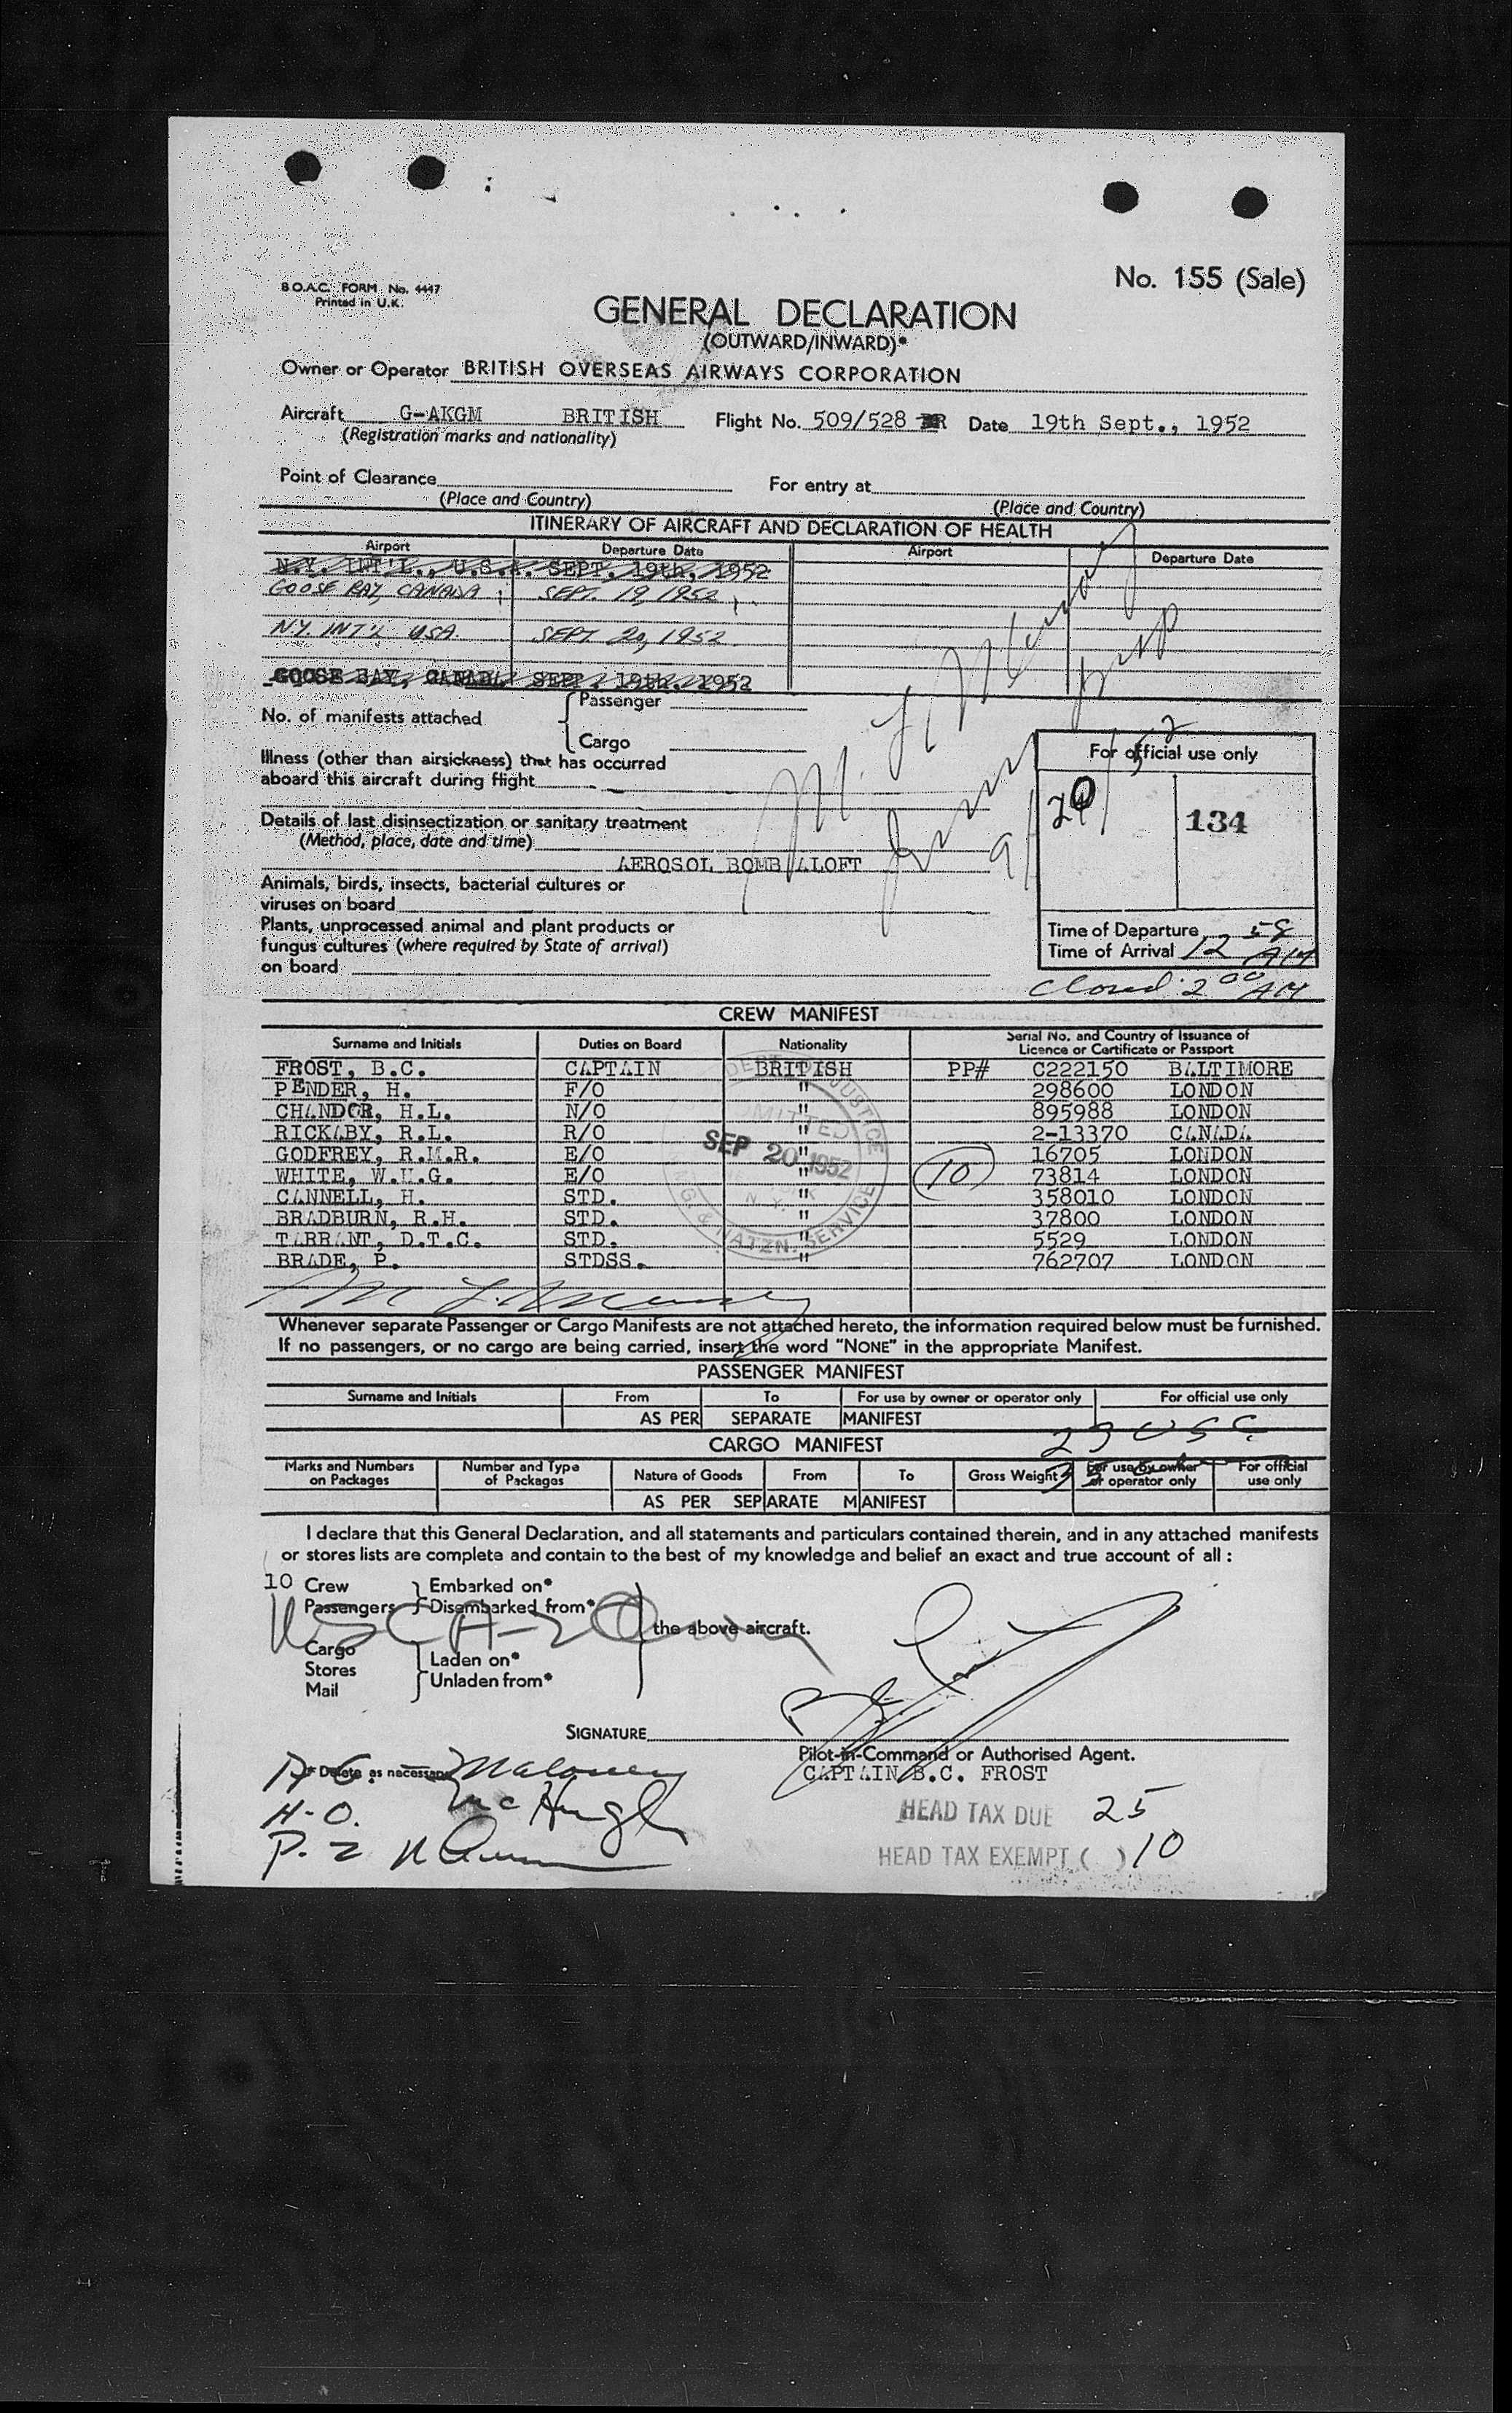 No. 155 (Sale)
B.O.A.C. FORM No. 4447
Printed in U.K.
GENERAL DECLARATION
(OUTWARD/INWARD)*
Owner or Operator BRITISH OVERSEAS AIRWAYS CORPORATION
Aircraft G-AKGM BRITISH Flight No. 509/528 Date 19th Sept., 1952
(Registration marks and nationality)
Point of Clearance For entry at
(Place and Country) (Place and Country)
ITINERARY OF AIRCRAFT AND DECLARATION OF HEALTH
Airport Departure Date Airport Departure Date
N.Y. INT'L., U.S.A. SEPT. 19th, 1952
GOOSE BAY, CANADA SEPT. 19, 1952
NY. INT'L USA. SEPT 20, 1952
GOOSE BAY, CANADA SEPT. 19th, 1952
No. of manifests attached Passenger
Cargo
For official use only
Illness (other than airsickness) that has occurred
aboard this aircraft during flight
134
Details of last disinsectization or sanitary treatment
(Method, place, date and time)
AEROSOL BOMB ALOFT
Animals, birds, insects, bacterial cultures or
viruses on board
Plants, unprocessed animal and plant products or
fungus cultures (where required by State of arrival)
on board
Time of Departure
Time of Arrival 12 58 AM
Closed 2 00 AM
CREW MANIFEST
Surname and Initials Duties on Board Nationality Serial No. and Country of Issuance of
Licence or Certificate or Passport
FROST, B.C. CAPTAIN BRITISH PP# C222150 BALTIMORE
PENDER, H. F/O " 298600 LONDON
CHANDOR, H.L. N/O " 895988 LONDON
RICKABY, R.L. R/O " 2-13370 CANADA
GODFREY, R.M.R. E/O " 16705 LONDON
WHITE, W.H.G. E/O " 73814 LONDON
CANNELL, H. STD. " 358010 LONDON
BRADBURN, R.H. STD. " 37800 LONDON
TARRANT, D.T.C. STD. " 5529 LONDON
BRADE, P. STDSS. " 762707 LONDON
10
DEPT. OF JUSTICE
ADMITTED
SEP 20 1952
N.Y.
& NATZN. SERVICE
Whenever separate Passenger or Cargo Manifests are not attached hereto, the information required below must be furnished.
If no passengers, or no cargo are being carried, insert the word "NONE" in the appropriate Manifest.
PASSENGER MANIFEST
Surname and Initials From To For use by owner or operator only For official use only
AS PER SEPARATE MANIFEST
CARGO MANIFEST
Marks and Numbers on Packages Number and Type of Packages Nature of Goods From To Gross Weight For use by owner or operator only For official use only
AS PER SEPARATE MANIFEST
I declare that this General Declaration, and all statements and particulars contained therein, and in any attached manifests
or stores lists are complete and contain to the best of my knowledge and belief an exact and true account of all :
10 Crew Embarked on*
Passengers Disembarked from*
the above aircraft.
Cargo
Stores Laden on*
Mail Unladen from*
SIGNATURE
Pilot-in-Command or Authorised Agent.
* Delete as necessary
CAPTAIN B.C. FROST
Maloney
H-O. McHugh
HEAD TAX DUE 25
HEAD TAX EXEMPT ( ) 10